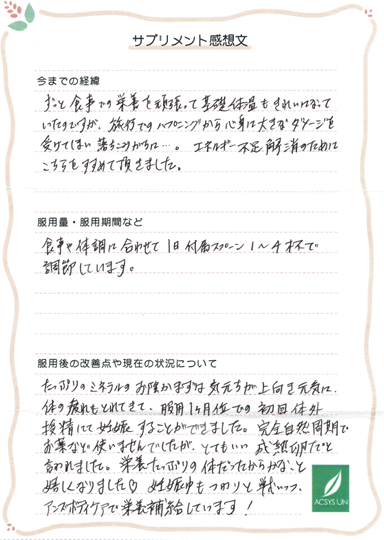 サプリメント感想文
今までの経緯
ずっと食事での栄養を頑張って基礎体温もきれいになって
いたのですが、旅行でのハプニングから心身に大きなダメージを
受けてしまい落ちこみがちに…。エネルギー不足解消のために
こちらをすすめて頂きました。
服用量・服用期間など
食事や体調に合わせて1日付属スプーン1〜4杯で
調節しています。
服用後の改善点や現在の状況について
たっぷりのミネラルのお陰かまずは気持ちが上向き元気に、
体の疲れもとれてきて、服用1ヶ月位での初回体外
授精にて妊娠することができました。完全自然周期で
お薬など使いませんでしたが、とてもいい成熟卵だと
言われました。栄養たっぷりの体だったからかな、と
嬉しくなりました♡ 妊娠中もつわりと戦いつつ、
アンズボディケアで栄養補給しています!
ACSYS UN